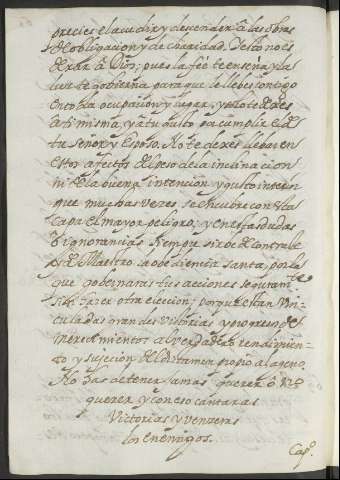 precies el acudir y descender à las obras
de obligacion y de charidad. Desto no es
dexar à Dios; pues la feè te enseña y la
luz te gobierna para que le llebes contigo
en toda ocupacion y lugar, y solo te dexes
à ti misma, y à tu gusto por cumplir el de
tu Señor y Esposo. No te dexes lleboar en
estos afectos del peso de la inclinacion
ni de la buena intencion y gusto interior
que muchas veces se encubre con esta
capa el mayor peligro; y en estas dudas
ò ignorancias siempre sirbe de contraste
y de Maestro la obediencia santa, por la
que gobernaras tus acciones seguramte
sin hazer otra eleccion; porque estan vin-
culadas grandes vitorias y progresos de
merecimientos al verdadero rendimien-
to y sujecion del dictamen propio al ageno.
No has de tener jamas querer ò no
querer y con eso cantaras
Victorias y venzeras
los enemigos.
Capo.